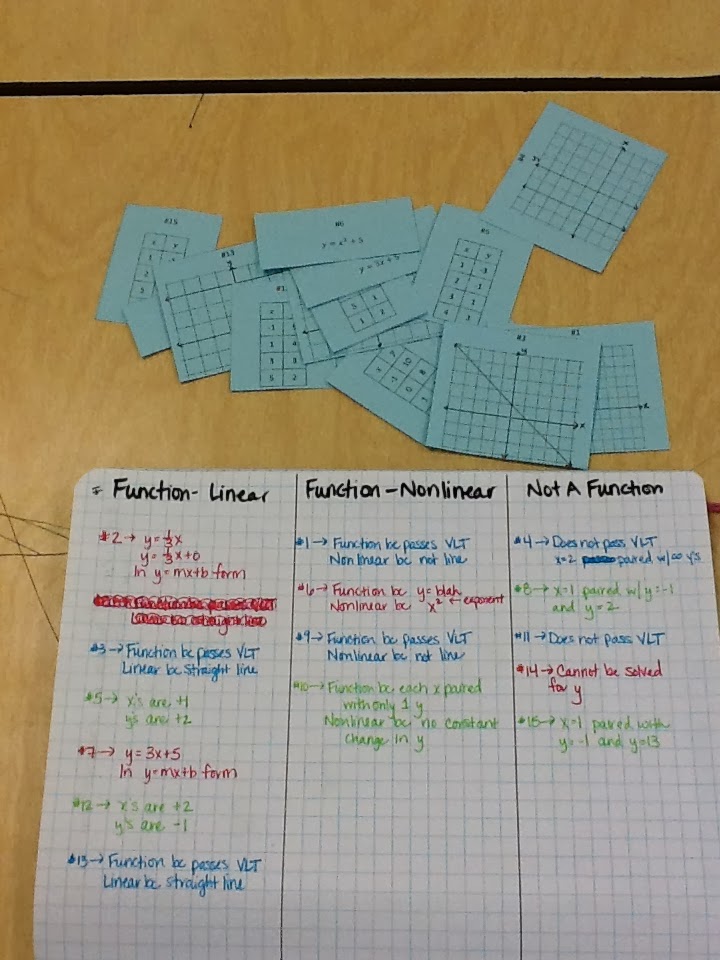 #15
x y
1
2
5
#13
#6
y = x² + 5
y = 3x + 5
#5
x y
1 -1
2 1
3 1
#1
x
1 4
3 3
5 2
5 1
1 2
#3
y
x
#1
x
Function- Linear
#2→ y=⅓x
y=⅓x+0
In y=mx+b form
#3→Function bc passes VLT
Linear bc straight line
#5→ x's are +1
y's are +2
#7→ y=3x+5
In y=mx+b form
#12→ x's are +2
y's are -1
#13→Function bc passes VLT
Linear bc straight line
Function-Nonlinear
#1→Function bc passes VLT
Nonlinear bc not line
#6→Function bc y=blah
Nonlinear bc x² ← exponent
#9→Function bc passes VLT
Nonlinear bc not line
#10→Function bc each x paired
with only 1 y
Nonlinear bc no constant
change in y
Not A Function
#4→Does not pass VLT
x=2 paired w/∞ y's
#8→ x=1 paired w/ y=-1
and y=2
#11→Does not pass VLT
#14→Cannot be solved
for y
#15→x=1 paired with
y=-1 and y=13